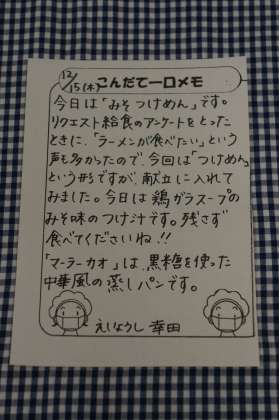 12/15(木)こんだて一口メモ
今日は「みそつけめん」です。
リクエスト給食のアンケートをとった
ときに、「ラーメンが食べたい」という
声も多かったので、今回は「つけめん」
という形ですが、献立に入れて
みました。今日は鶏ガラスープの
みそ味のつけ汁です。残さず
食べてくださいね!!
「マーラーカオ」は、黒糖を使った
中華風の蒸しパンです。
えいようし 幸田